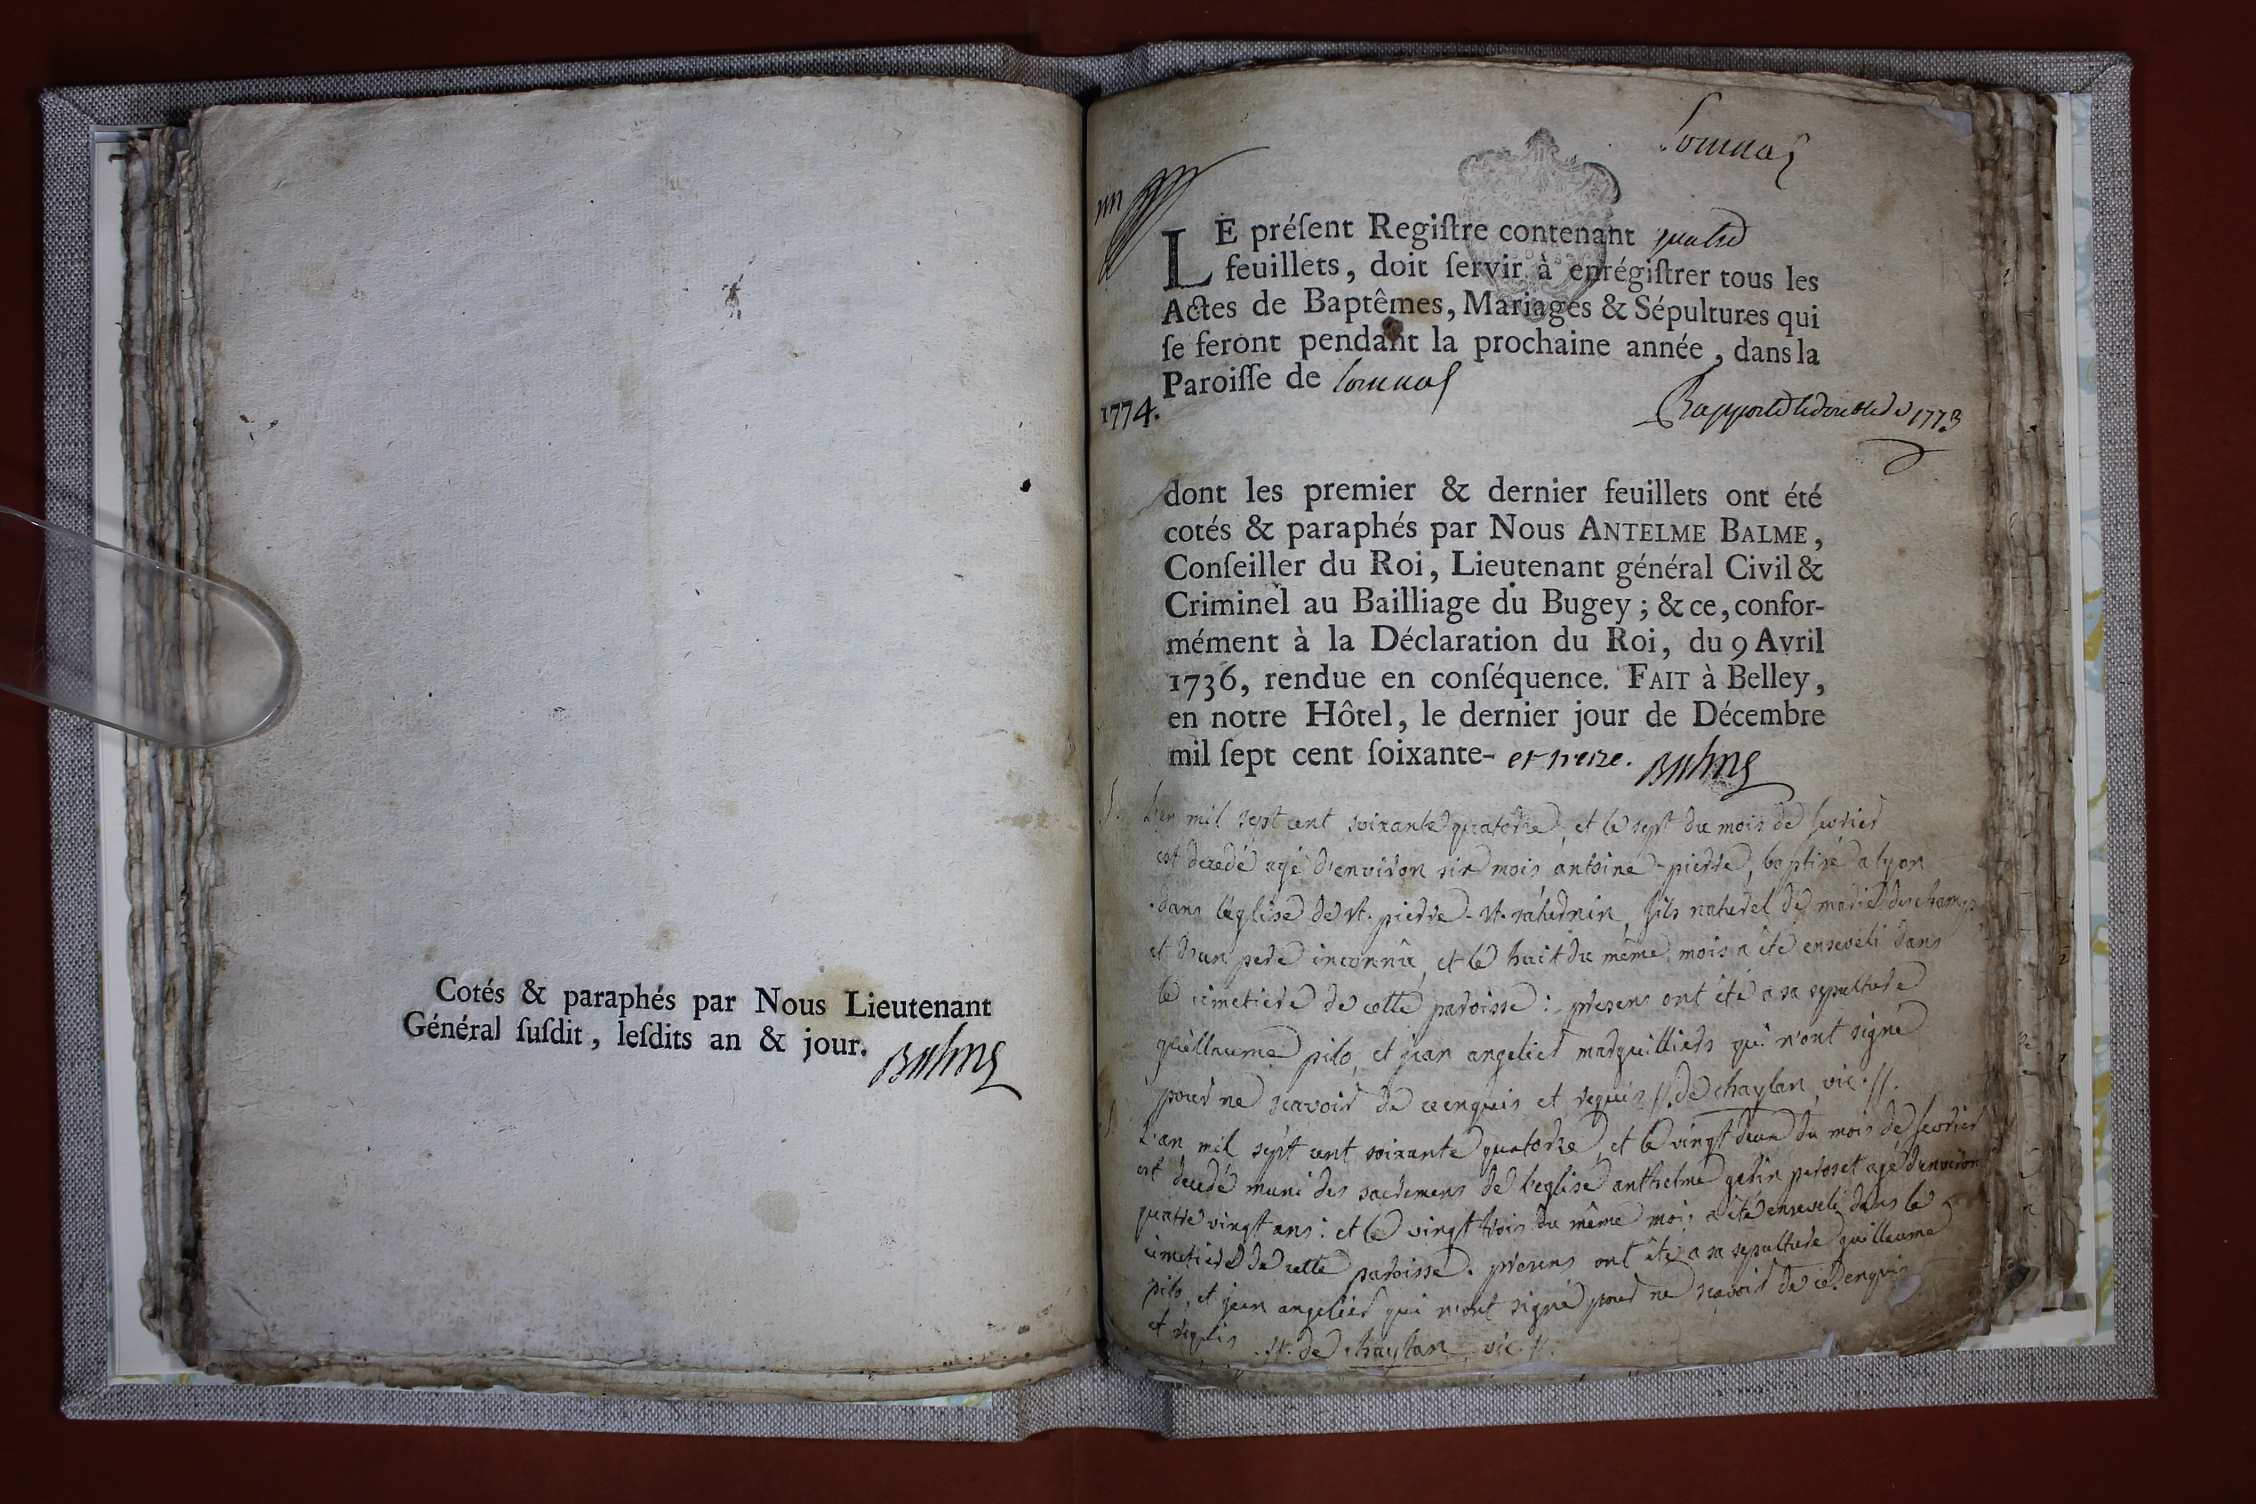 Cotés & paraphés par Nous Lieutenant
Général ſuſdit, leſdits an & jour. Balme
Lomnas
LE préſent Regiſtre contenant quatre
feuillets, doit ſervir à enrégiſtrer tous les
Actes de Baptêmes, Mariages & Sépultures qui
ſe feront pendant la prochaine année, dans la
Paroiſſe de Lomnas
1774.
Rapporté le double de 1773
dont les premier & dernier feuillets ont été
cotés & paraphés par Nous ANTELME BALME,
Conſeiller du Roi, Lieutenant général Civil &
Criminel au Bailliage du Bugey ; & ce, confor-
mément à la Déclaration du Roi, du 9 Avril
1736, rendue en conſéquence. FAIT à Belley,
en notre Hôtel, le dernier jour de Décembre
mil ſept cent ſoixante- et treize. Balme
S. L'an mil sept cent soixante quatorze, et le sept du mois de fevrier
est decedé agé d'environ six mois antoine-pierre, baptisé a lyon
dans l'église de st. pierre-st. saturnin, fils naturel de marie deschamps
et d'un pere inconnû, et le huit du même mois a été enseveli dans
le cimetiere de cette paroisse : presens ont été a sa sepulture
guillaume pilo, et jean angelier marguilliers qui n'ont signé
pour ne scavoir de ce enquis et requis //. de chaylan, vic. //.
S. L'an mil sept cent soixante quatorze, et le vingt deux du mois de fevrier
est decedé muni des sacremens de l'eglise anthelme gerin peroset agé d'environ
quatre vingt ans : et le vingt trois du même mois a été enseveli dans le
cimetiere de cette paroisse. presens ont été a sa sepulture guillaume
pilo, et jean angelier qui n'ont signé pour ne scavoir de ce enquis
et requis. //. de chaylan, vic. //.